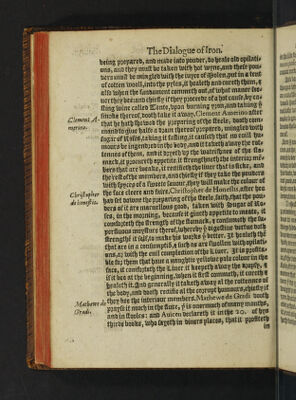 The Dialogue of Iron.
being prepared, and made into pouder, do heale old opilati-
ons, and they must be taken with hot wyne, and these pou-
ders must be mingled with the iuyce of
of cotten wooll, into the
also when the fundament commeth out, of what maner soe-
uer they bee and chiefly if they proceede of a hot cause, by ca-
sting wine called Tinto, upon burning yron, and taking the
smoke thereof, doth take it away. Clement Amerino after
that he hath shewed the preparing of the steele, doth com-
maund to giue halfe a dram thereof prepared, mingled with
suger of Roses, taking it fasting, it causeth that no cold hu-
mours be ingendred in the body, and it taketh away the rot-
tennes of them, and it dryeth up the watrishnes of the sto-
mack, it procureth appetite, it strengtheneth the interior me-
bers that are weake, it rectifieth the liuer that is sicke, and
the rest of the members, and chiefly if they take the pouders
with spyces of a sweete sauour, they doll make the colour of
the face cleere and faire. Christopher de Honestis, after hee
has set downe the preparing of the steele, saith, that the pou-
ders of it are maruellous good, taken with Sugar of Ro-
ses, in the morning, because it giueth appetite to meate, it
comforteth the strength of the stomack, it consumeth the su-
perfluous moysture thereof, whereby the digestiue vertue doth
strengthen it selfe, to make his worke the better. It healeth the
that are in a consumption, such as are swollen with opilati-
ons, or with the euill complection of the liuer. It is profita-
ble for them that haue a naughtie yellowe pale colour in the
face, it comforteth the Liuer it keepeth away the Dropsie, or
if it bee at the beginning, when it first commeth, it cureth &
healeth it. And generally it taketh away al the rottennes of
the body, and doth rectifie al the corrupt humours, chiefly of
they bee the interiour members. Mathewe de Gradi doth
prayse it much in the fluxe, the is ouermuch of many months,
and in stooles: and Auicen declareth it in the 20. of hys
thirde booke, who sayeth in diuers places, that it profiteth
in
Clement A
merino.
Christopher
de honestis.
Mathewe de
Gradi.